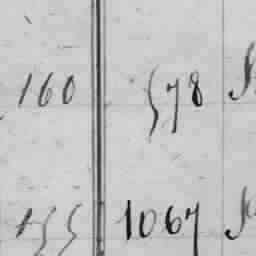 160 578
155 1067